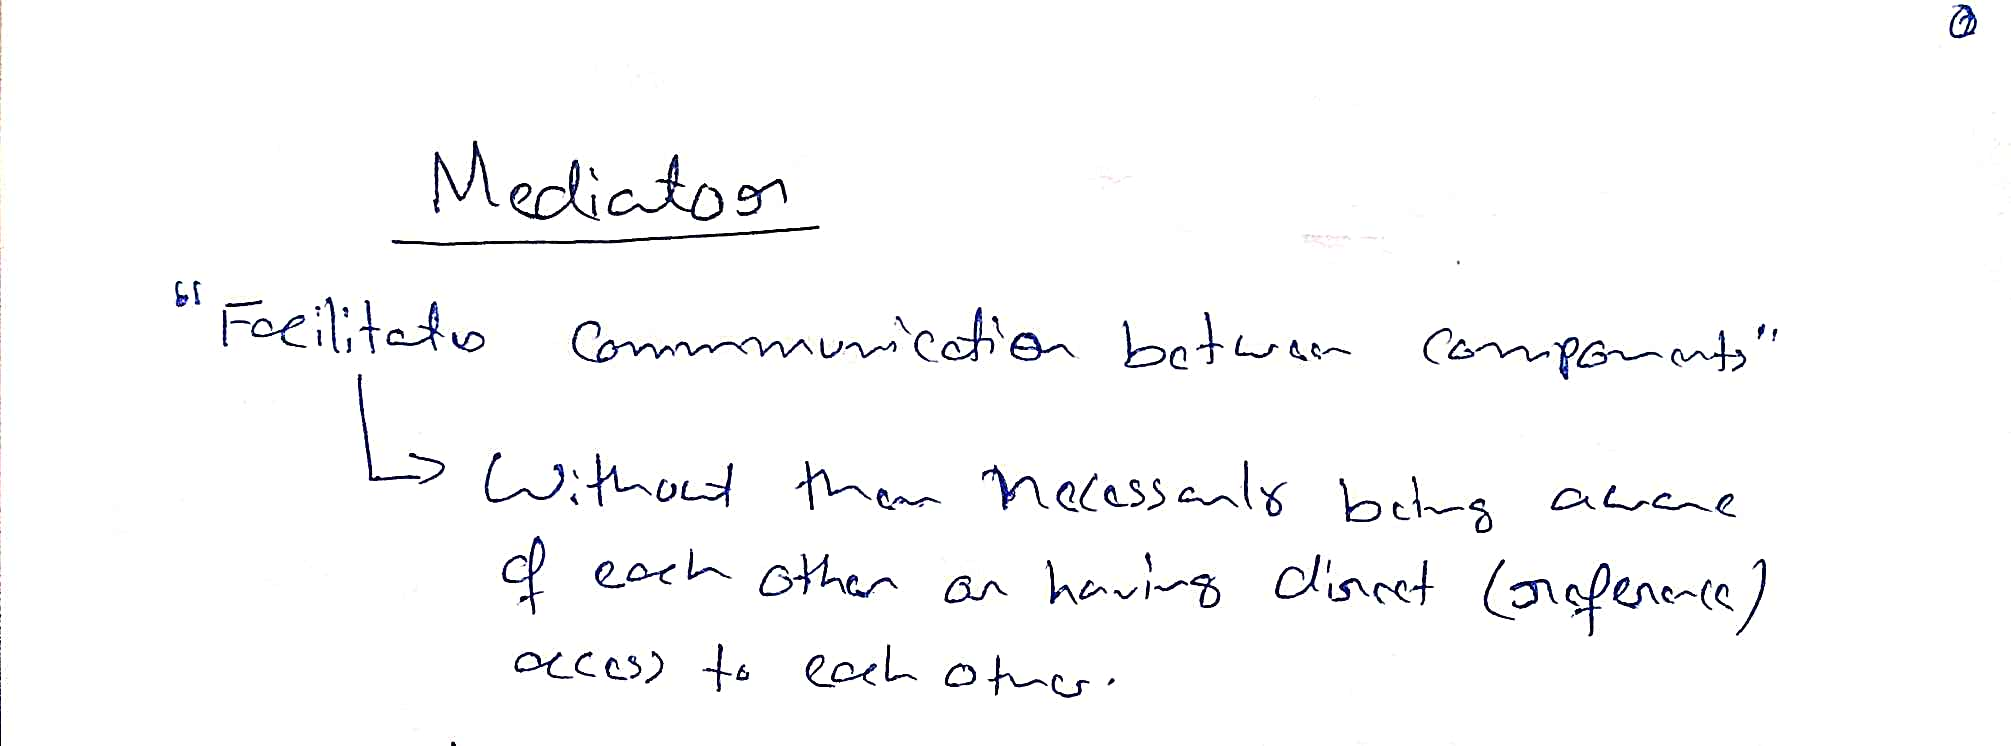 Mediator
"Facilitates communication between components"
↳ Without them necessarily being aware
of each other or having direct (reference)
access to each other.